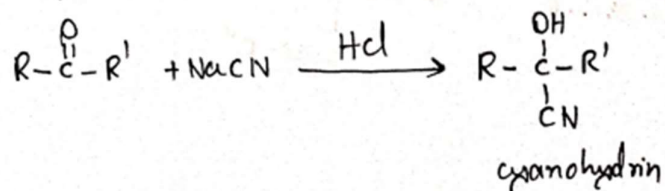 O
||
R-C-R' + NaCN HCl → R-C-R'
OH
CN
cyanohydrin